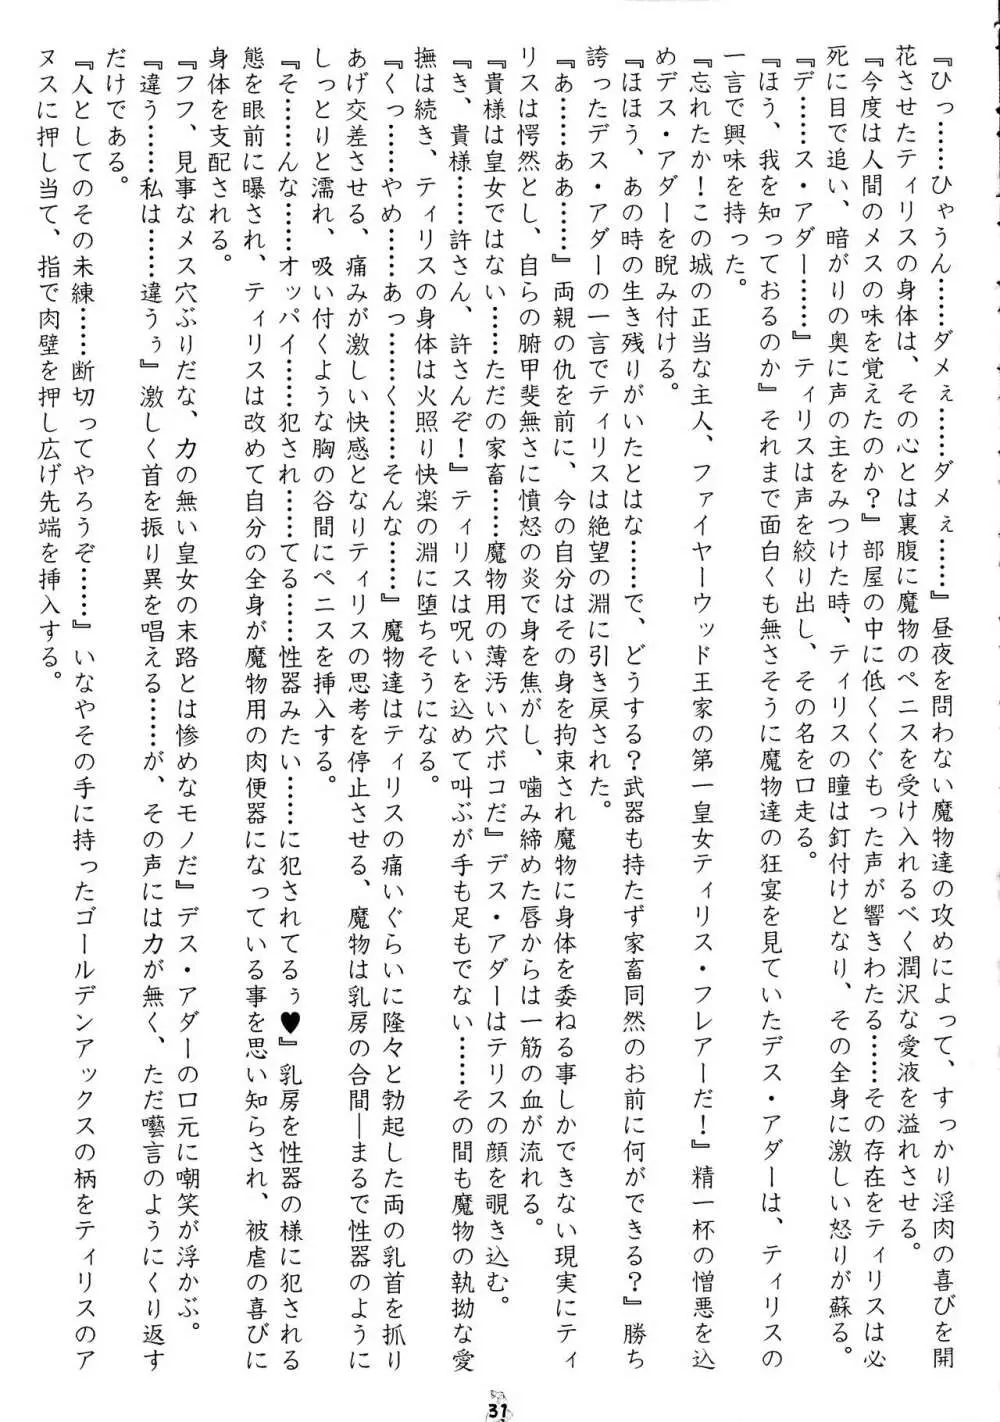 『ひっ……ひゃうん……ダメぇ……ダメぇ……』昼夜を問わない魔物達の攻めによって、すっかり淫肉の喜びを開
花させたティリスの身体は、その心とは裏腹に魔物のペニスを受け入れるべく潤沢な愛液を溢れさせる。
『今度は人間のメスの味を覚えたのか？』部屋の中に低くくぐもった声が響きわたる……その存在をティリスは必
死に目で追い、暗がりの奥に声の主をみつけた時、ティリスの瞳は釘付けとなり、その全身に激しい怒りが蘇る。
『デ……ス・アダー……』ティリスは声を絞り出し、その名を口走る。
『ほう、我を知っておるのか』それまで面白くも無さそうに魔物達の狂宴を見ていたデス・アダーは、ティリスの
一言で興味を持った。
『忘れたか！この城の正当な主人、ファイヤーウッド王家の第一皇女ティリス・フレアーだ！』精一杯の憎悪を込
めデス・アダーを睨み付ける。
『ほほう、あの時の生き残りがいたとはな……で、どうする？武器も持たず家畜同然のお前に何ができる？』勝ち
誇ったデス・アダーの一言でティリスは絶望の淵に引き戻された。
『あ……ああ……』両親の仇を前に、今の自分はその身を拘束され魔物に身体を委ねる事しかできない現実にティ
リスは愕然とし、自らの腑甲斐無さに憤怒の炎で身を焦がし、噛み締めた唇からは一筋の血が流れる。
『貴様は皇女ではない……ただの家畜……魔物用の薄汚い穴ボコだ』デス・アダーはテリスの顔を覗き込む。
『き、貴様……許さん、許さんぞ！』ティリスは呪いを込めて叫ぶが手も足もでない……その間も魔物の執拗な愛
撫は続き、ティリスの身体は火照り快楽の淵に堕ちそうになる。
『くっ……やめ……あっ……く……そんな……』魔物達はティリスの痛いぐらいに隆々と勃起した両の乳首を抓り
あげ交差させる、痛みが激しい快感となりティリスの思考を停止させる、魔物は乳房の合間―まるで性器のように
しっとりと濡れ、吸い付くような胸の谷間にペニスを挿入する。
『そ……んな……オッパイ……犯され……てる……性器みたい……に犯されてるぅ♥』乳房を性器の様に犯される
態を眼前に曝され、ティリスは改めて自分の全身が魔物用の肉便器になっている事を思い知らされ、被虐の喜びに
身体を支配される。
『フフ、見事なメス穴ぶりだな、力の無い皇女の末路とは惨めなモノだ』デス・アダーの口元に嘲笑が浮かぶ。
『違う……私は……違うぅ』激しく首を振り異を唱える……が、その声には力が無く、ただ囈言のようにくり返す
だけである。
『人としてのその未練……断切ってやろうぞ……』いなやその手に持ったゴールデンアックスの柄をティリスのア
ヌスに押し当て、指で肉壁を押し広げ先端を挿入する。
31